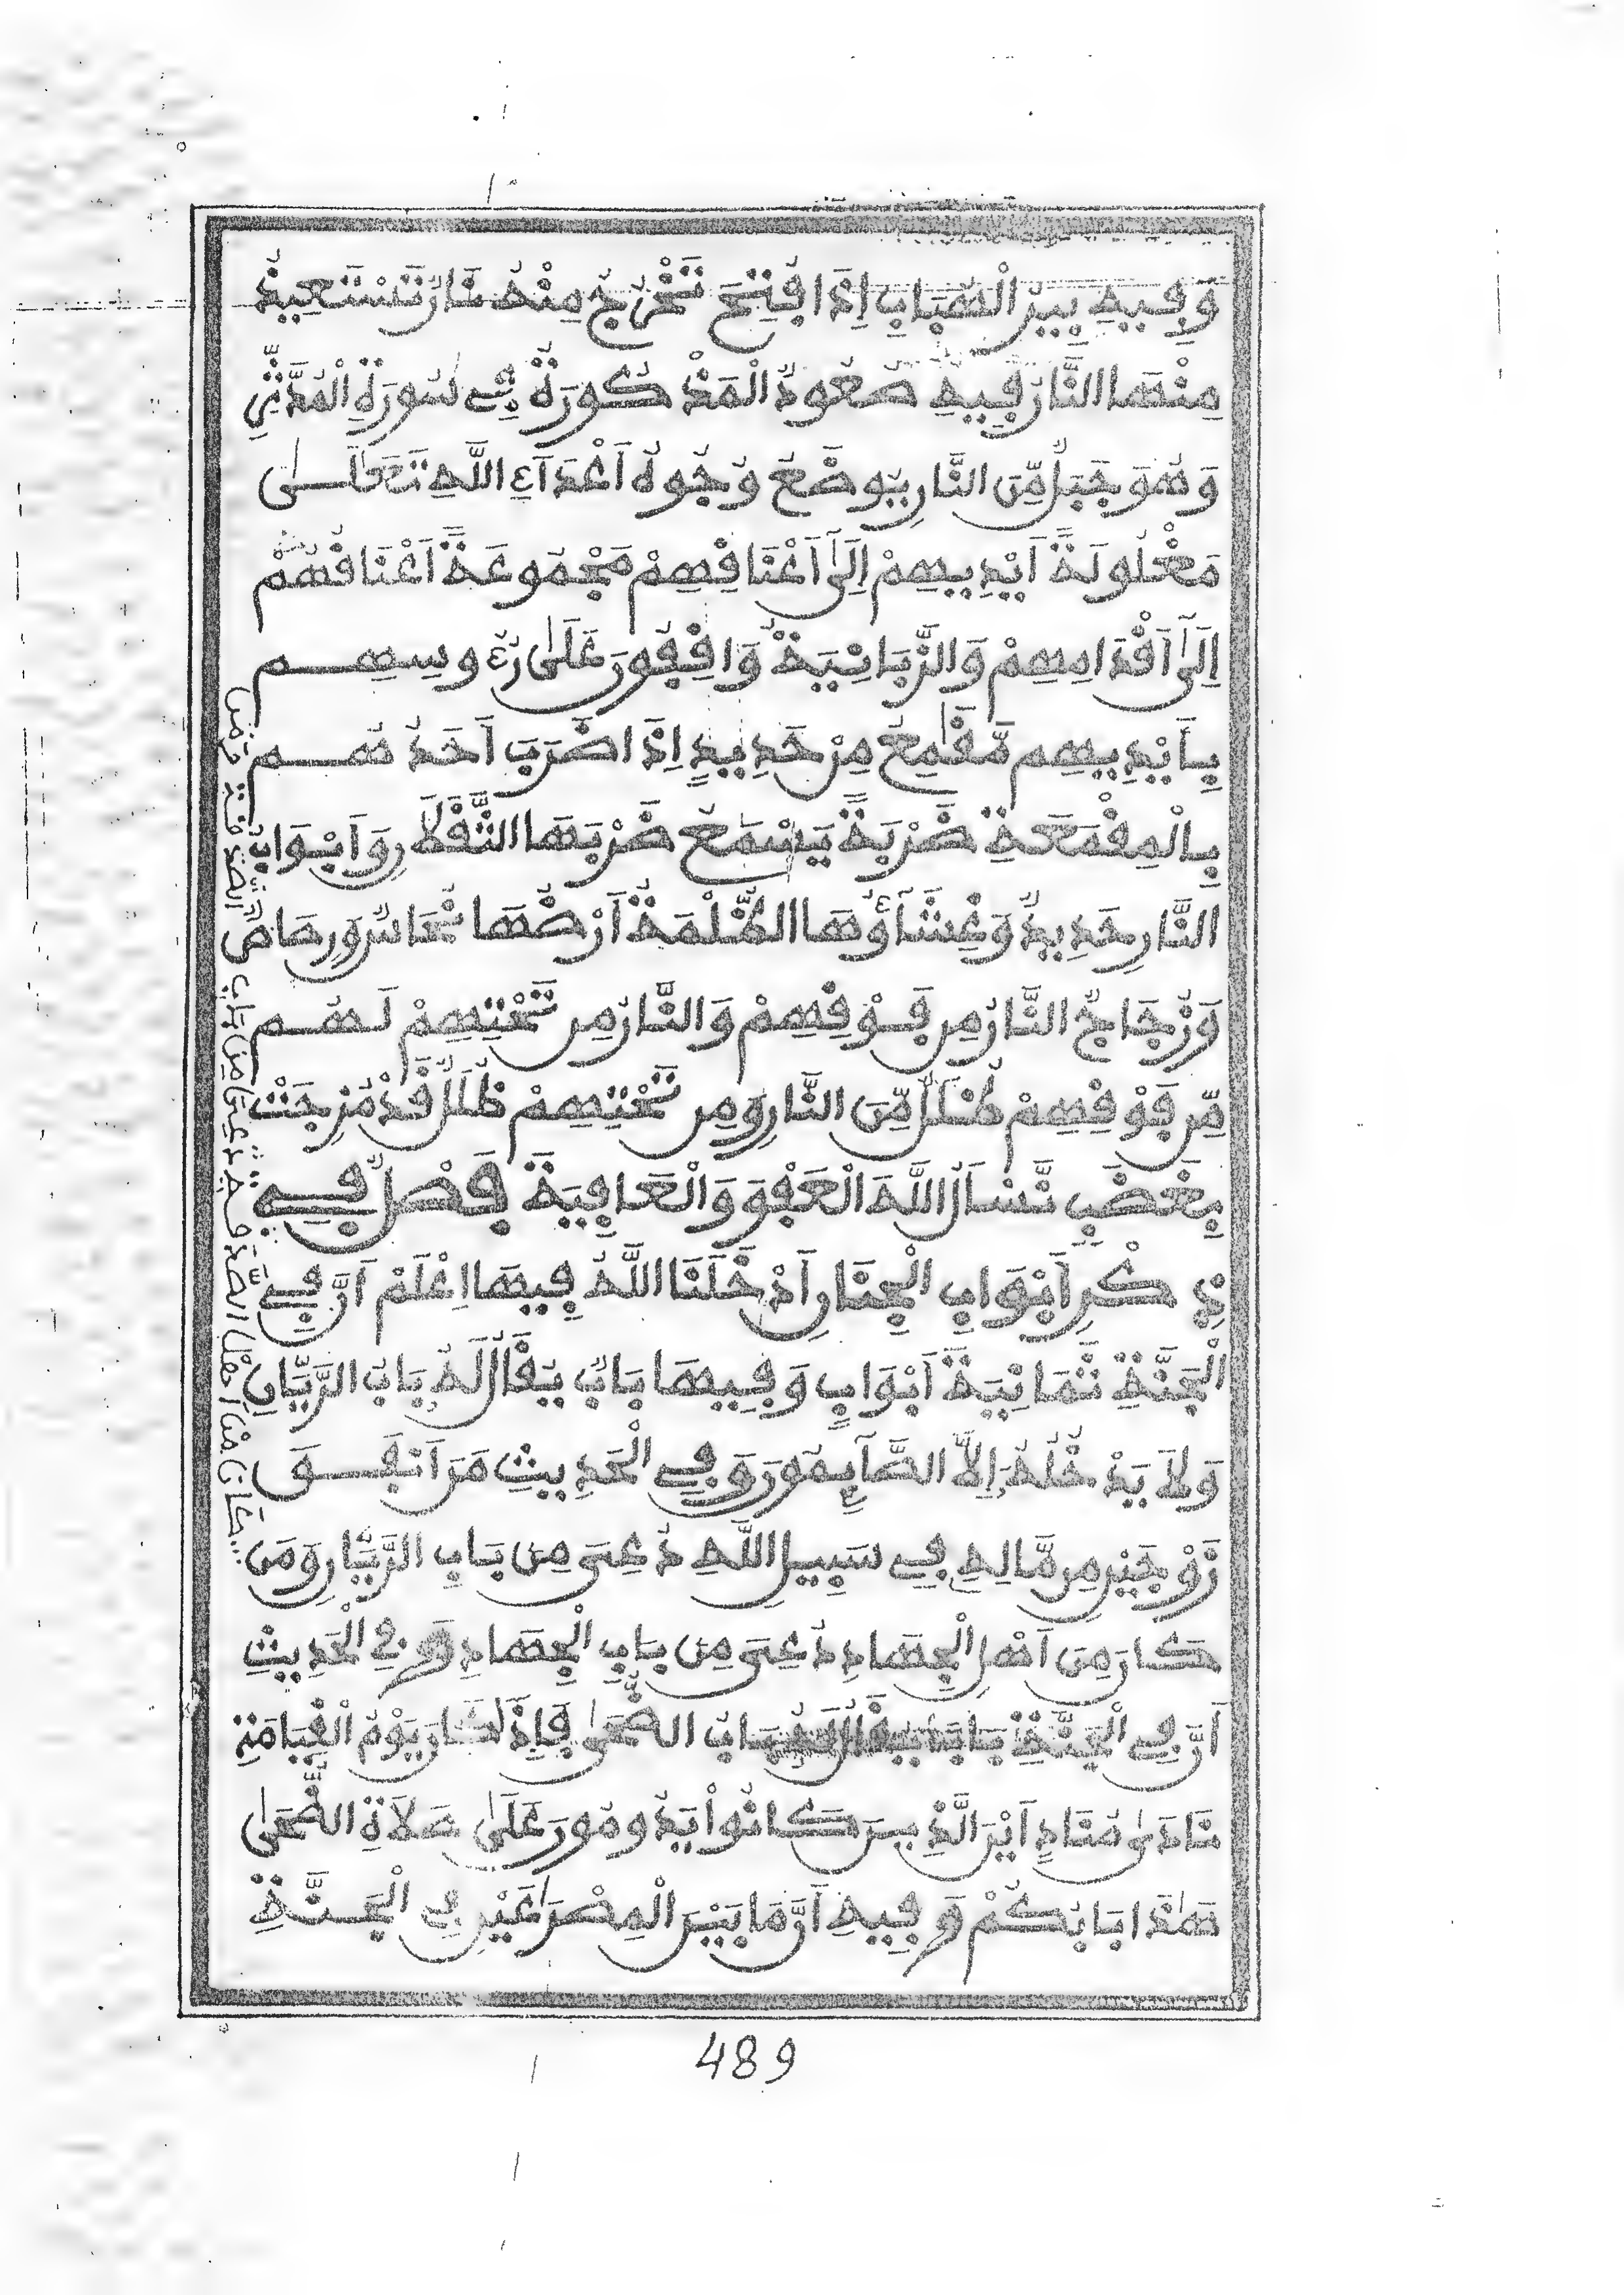 وَفِيهِ بِيرُ الْهَبَابِ إِذَا فُتِحَ تَخْرُجُ مِنْهُ نَارٌ تَسْتَعِيذُ
مِنْهَا النَّارُ فِيهِ صَعُودٌ الْمَذْكُورَةُ فِي سُورَةِ الْمُدَّثِّرِ
وَهُوَ جَبَلٌ مِّنَ النَّارِ يُوضَعُ وُجُوهُ أَعْدَآءِ اللَّهِ تَعَالَىٰ
مَغْلُولَةً أَيْدِيهِمْ إِلَىٰ أَعْنَاقِهِمْ مَجْمُوعَةً أَعْنَاقُهُمْ
إِلَىٰ أَقْدَامِهِمْ وَالزَّبَانِيَةُ وَاقِفُونَ عَلَىٰ رُءُوسِهِم
بِأَيْدِيهِم مَّقْٰمِعُ مِنْ حَدِيدٍ إِذَا ضَرَبَ أَحَدُهُم
بِالْمِقْمَعَةِ ضَرْبَةً يَسْمَعُ ضَرْبَهَا الثَّقَلَانِ وَأَبْوَابُ
النَّارِ حَدِيدٌ وَغِشَآؤُهَا الظُّلْمَةُ أَرْضُهَا نُحَاسٌ وَرِصَاصٌ
وَزُجَاجٌ النَّارُ مِن فَوْقِهِمْ وَالنَّارُ مِن تَحْتِهِمْ لَهُم
مِّن فَوْقِهِمْ ظُلَلٌ مِّنَ النَّارِ وَمِن تَحْتِهِمْ ظُلَلٌ قَدْ مُزِجَتْ
بِغَضَبٍ نَّسْأَلُ اللَّهَ الْعَفْوَ وَالْعَافِيَةَ فَصْلٌ فِي
ذِكْرِ أَبْوَابِ الْجِنَانِ أَدْخَلَنَا اللَّهُ فِيهَا اِعْلَمْ أَنَّ فِي
الْجَنَّةِ ثَمَانِيَةَ أَبْوَابٍ وَفِيهَا بَابٌ يُقَالُ لَهُ بَابُ الرَّيَّانِ
وَلَا يَدْخُلُهُ إِلَّا الصَّآئِمُونَ وَفِي الْحَدِيثِ مَنْ أَنفَقَ
زَوْجَيْنِ مِن مَّالِهِ فِي سَبِيلِ اللَّهِ دُعِيَ مِن بَابِ الرَّيَّانِ وَمَن
كَانَ مِنَ أَهْلِ الْجِهَادِ دُعِيَ مِن بَابِ الْجِهَادِ وَفِي الْحَدِيثِ
أَنَّ فِي الْجَنَّةِ بَابًا يُقَالُ لَهُ بَابُ الضُّحَىٰ فَإِذَا كَانَ يَوْمُ الْقِيَامَةِ
نَادَىٰ مُنَادٍ أَيْنَ الَّذِينَ كَانُوا يَدُومُونَ عَلَىٰ صَلَاةِ الضُّحَىٰ
هَٰذَا بَابُكُمْ وَفِيهِ أَنَّ مَا بَيْنَ الْمِصْرَاعَيْنِ فِي الْجَنَّةِ
كَانَ مِنْ أَهْلِ الصَّدَقَةِ دُعِيَ مِنْ بَابِ الصَّدَقَةِ وَمَن
489